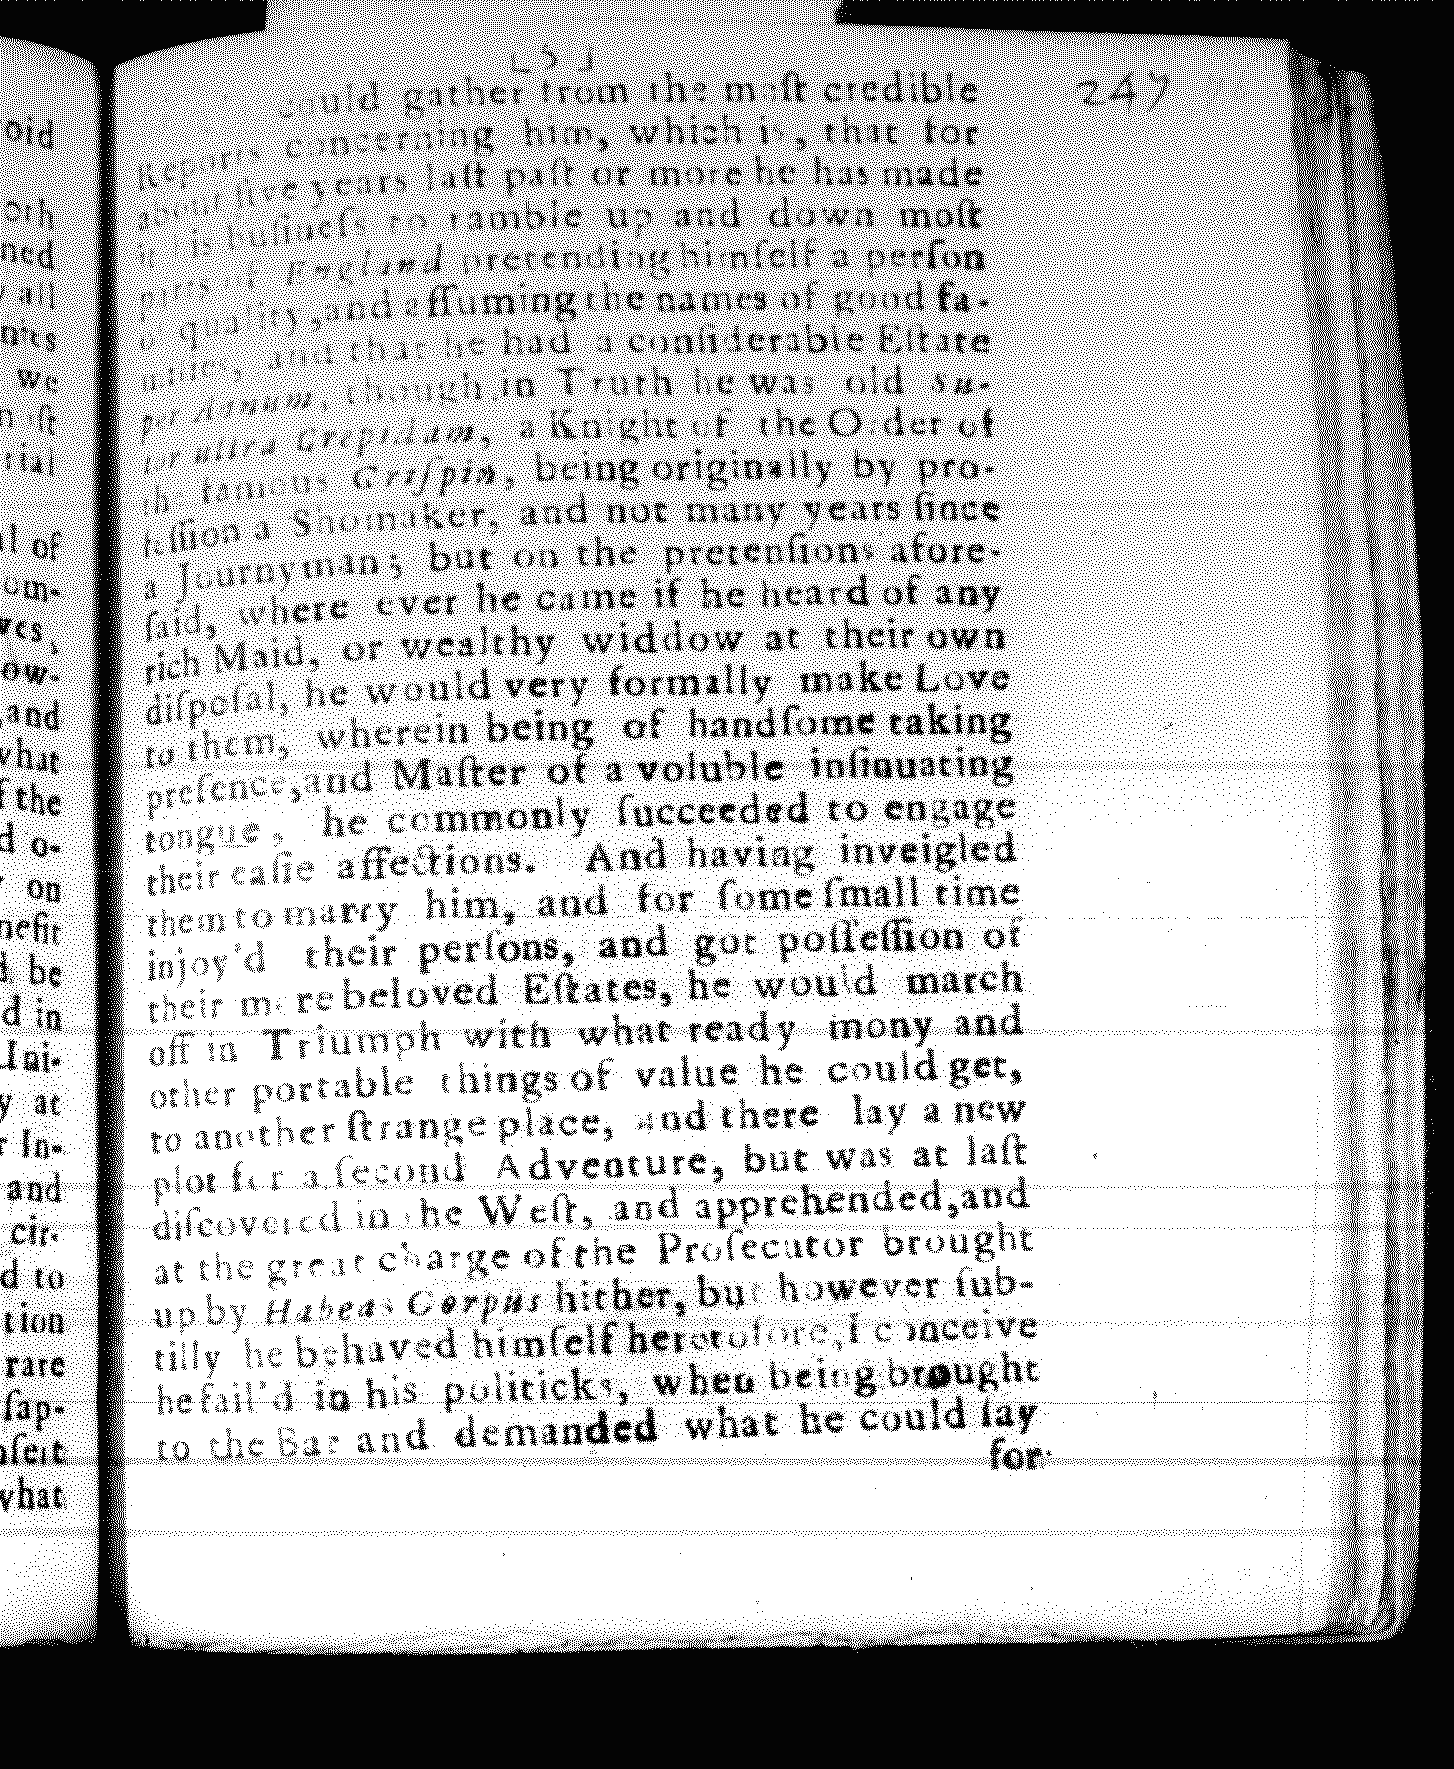 247
could gather from the most credible
Reports concerning him, which is, that for
years last past or more he has made
it his business to ramble up and down most
parts of England pretending himself a person
of quality, and assuming the names of good fa-
milies, and that he had a considerable Estate
per Annum, though in Truth he was old Su-
tor ultra Crepidam, a Knight of the Order of
the famous Crispin, being originally by pro-
fession a Shoomaker, and not many years since
a Journyman; but on the pretensions afore-
said, where ever he came if he heard of any
rich Maid, or wealthy widdow at their own
disposal, he would very formally make Love
to them; wherein being of handsome taking
presence, and Master of a voluble insinuating
tongue, he commonly succeeded to engage
their easie affections. And having inveigled
them to marry him, and for some small time
injoy'd their persons, and got possession of
their more beloved Estates, he would march
off in Triumph with what ready mony and
other portable things of value he could get,
to another strange place, and there lay a new
plot for a second Adventure, but was at last
discovered in the West, and apprehended, and
at the great charge of the Prosecutor brought
up by Habeas Corpus hither, but however sub-
tilly he behaved himself heretofore, I conceive
he fail'd in his politicks, when being brought
to the Bar and demanded what he could say
for